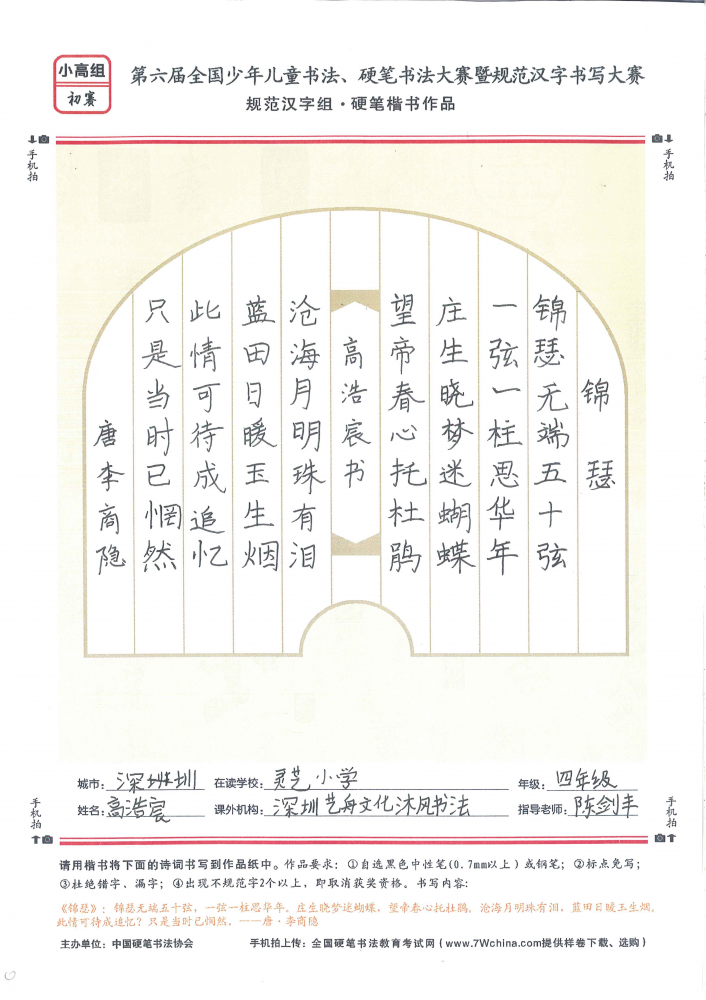 小高组
初赛
第六届全国少年儿童书法、硬笔书法大赛暨规范汉字书写大赛
规范汉字组·硬笔楷书作品
手机拍
手机拍
锦瑟
锦瑟无端五十弦
一弦一柱思华年
庄生晓梦迷蝴蝶
望帝春心托杜鹃
高浩宸书
沧海月明珠有泪
蓝田日暖玉生烟
此情可待成追忆
只是当时已惘然
唐李商隐
城市：深圳 在读学校：灵芝小学 年级：四年级
姓名：高浩宸 课外机构：深圳艺舟文化沐风书法 指导老师：陈剑丰
手机拍
手机拍
请用楷书将下面的诗词书写到作品纸中。作品要求：①自选黑色中性笔(0.7mm以上)或钢笔；②标点免写；
③杜绝错字、漏字；④出现不规范字2个以上，即取消获奖资格。书写内容：
《锦瑟》：锦瑟无端五十弦，一弦一柱思华年。庄生晓梦迷蝴蝶，望帝春心托杜鹃。沧海月明珠有泪，蓝田日暖玉生烟。
此情可待成追忆？只是当时已惘然。——唐·李商隐
主办单位：中国硬笔书法协会 手机拍上传：全国硬笔书法教育考试网(www.7Wchina.com提供样卷下载、选购)